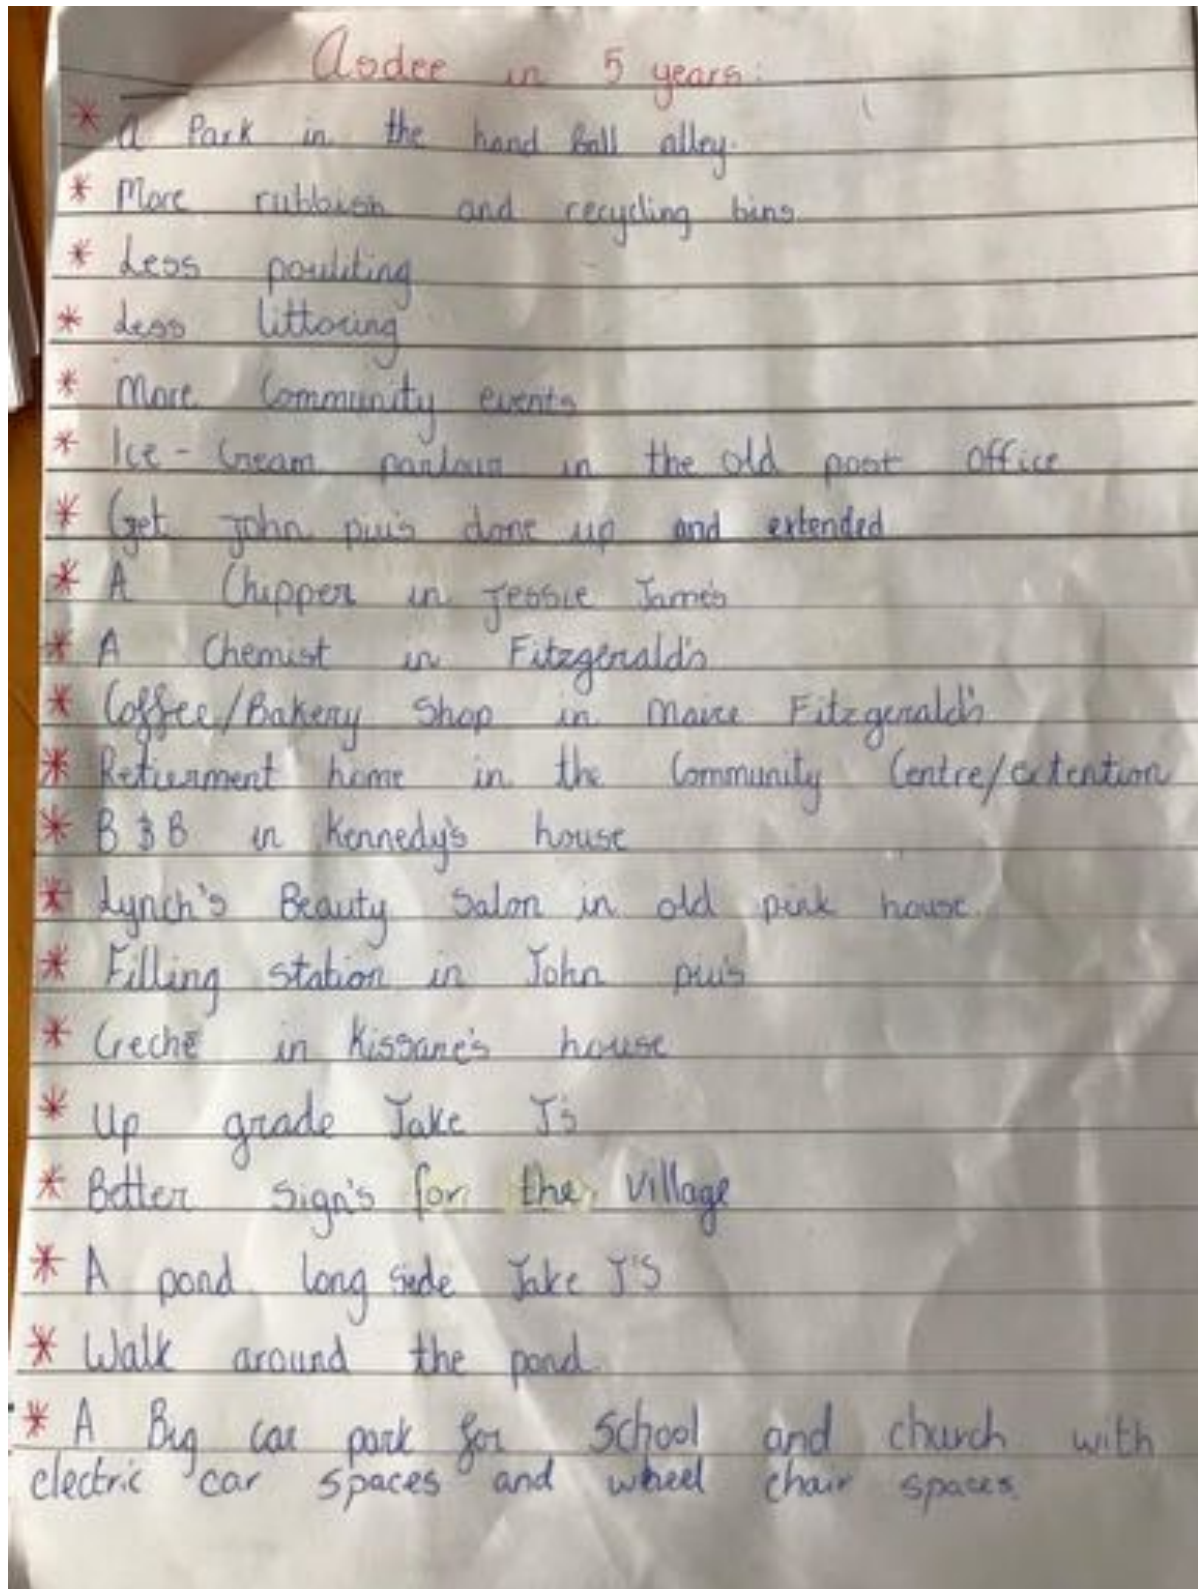 Asdee in 5 years:
* A Park in the hand Ball alley.
* More rubbish and recycling bins
* Less poulliting
* Less littoring
* More Community events
* Ice-Cream parlour in the old post office
* Get John puis done up and extended
* A Chipper in Jessie James
* A Chemist in Fitzgerald's
* Coffee/Bakery Shop in Maire Fitzgerald's
* Retierment home in the Community Centre/extention
* B & B in Kennedy's house
* Lynch's Beauty Salon in old pink house.
* Filling station in John puis
* Creche in Kissane's house
* Up grade Jake J's
* Better Sign's for the Village
* A pond long side Jake J'S
* Walk around the pond.
* A Big car park for School and church with
electric car spaces and wheel chair spaces.